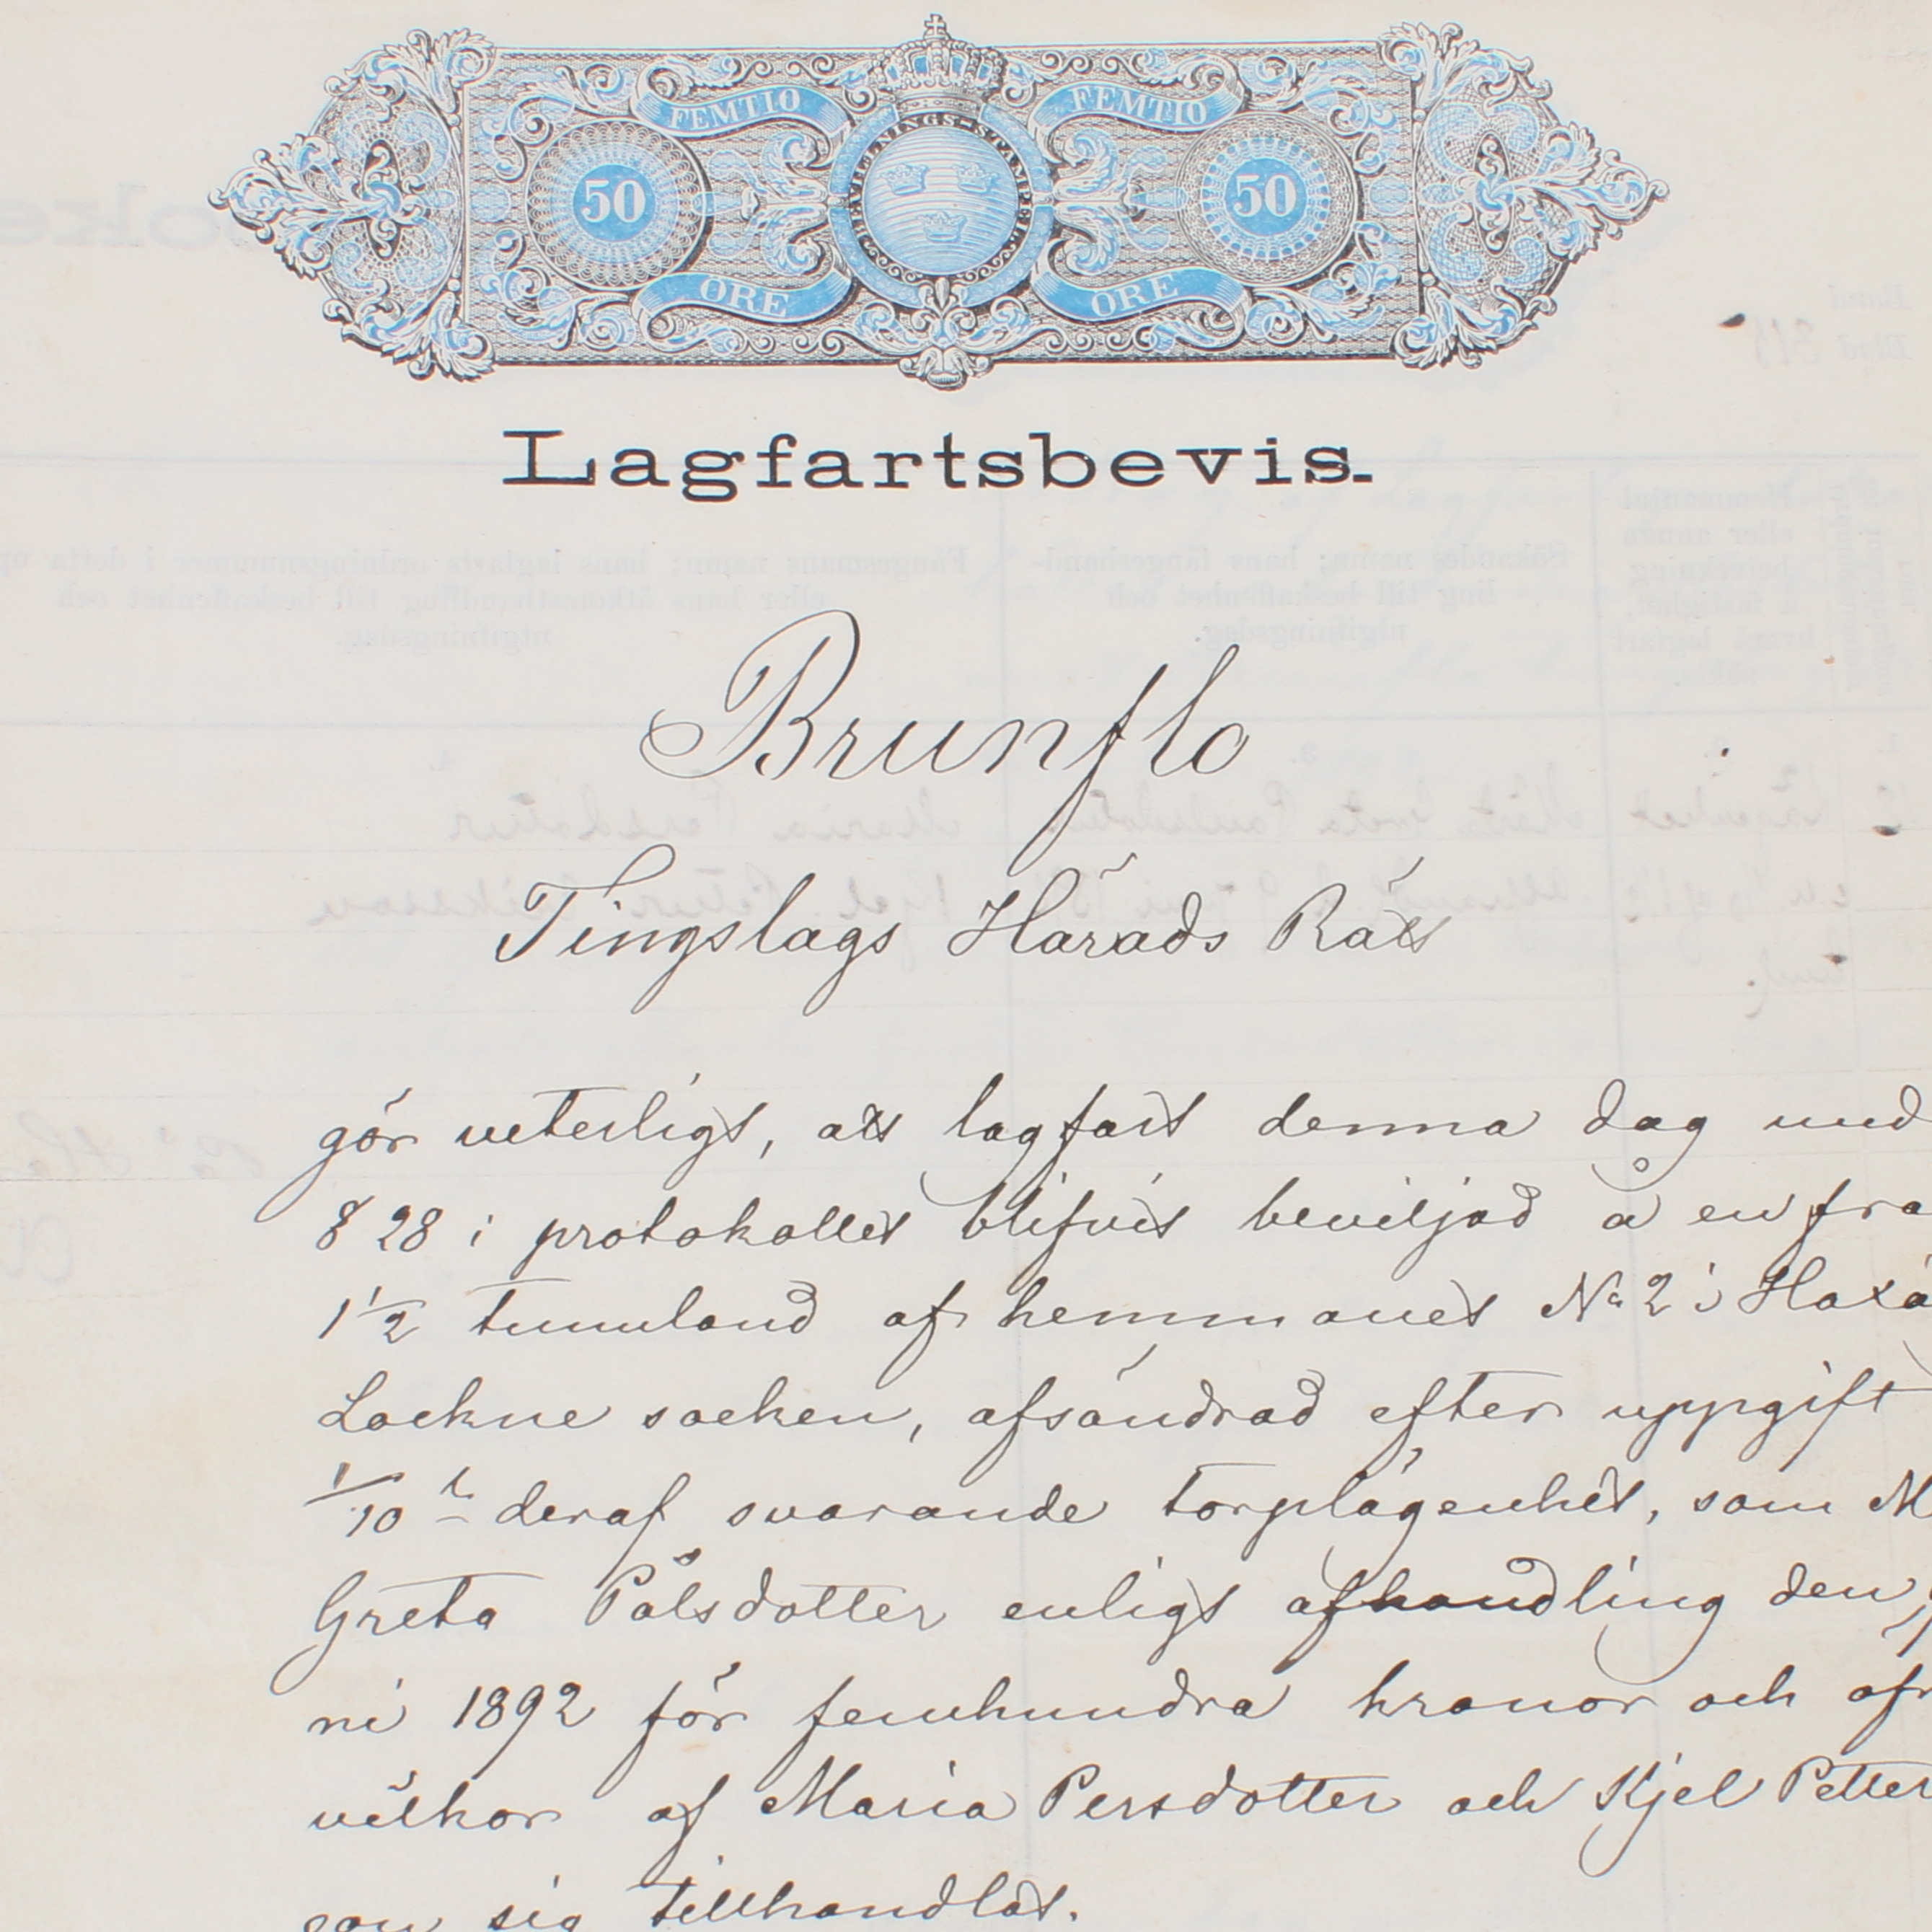 FEMTIO FEMTIO
BEVILLNINGS-STÄMPEL
50 50
ÖRE ÖRE
Lagfartsbevis.
Brunflo
Tingslags Härads Rätt
gör veterligt, att lagfart denna dag und
§ 28 i protokollet blifvit beviljad å en fra
1 1/2 tunnland af hemmanet No 2 i Haxä
Lockne socken, afsöndrad efter uppgift
1/10 deraf svarande torplägenhet, som M
Greta Pålsdotter enligt afhandling den
ni 1892 för femhundra kronor och öfr
vilkor af Maria Persdotter och Kjel Petter
son sig tillhandlat.